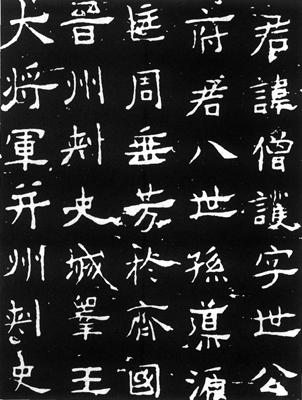 君諱僧護字世公
府君八世孫源
周垂芳於齊國
晉州刾史城王
大將軍并州刾史